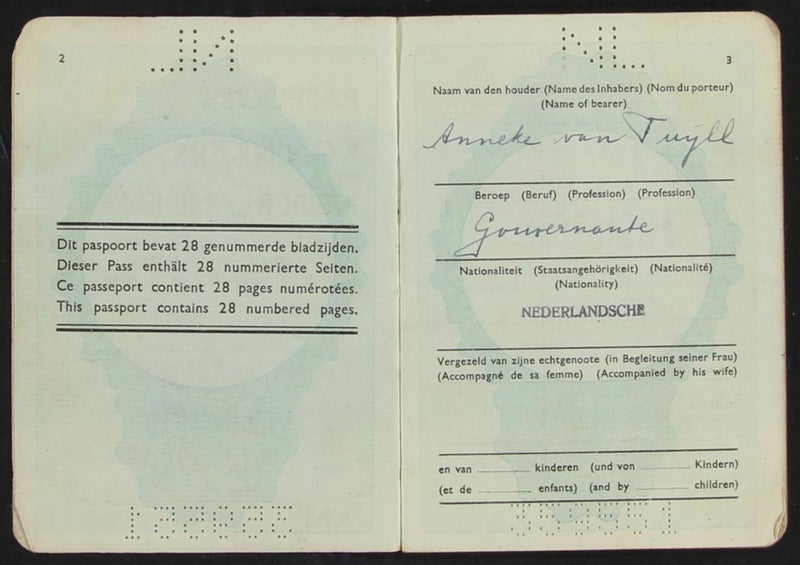 2
Dit paspoort bevat 28 genummerde bladzijden.
Dieser Pass enthält 28 nummerierte Seiten.
Ce passeport contient 28 pages numérotées.
This passport contains 28 numbered pages.
NL
3
Naam van den houder (Name des Inhabers) (Nom du porteur)
(Name of bearer)
Anneke van Tuÿll
Beroep (Beruf) (Profession) (Profession)
Gouvernante
Nationaliteit (Staatsangehörigkeit) (Nationalité)
(Nationality)
NEDERLANDSCHE
Vergezeld van zijne echtgenoote (in Begleitung seiner Frau)
(Accompagné de sa femme) (Accompanied by his wife)
en van ............ kinderen (und von ............ Kindern)
(et de ............ enfants) (and by ............ children)